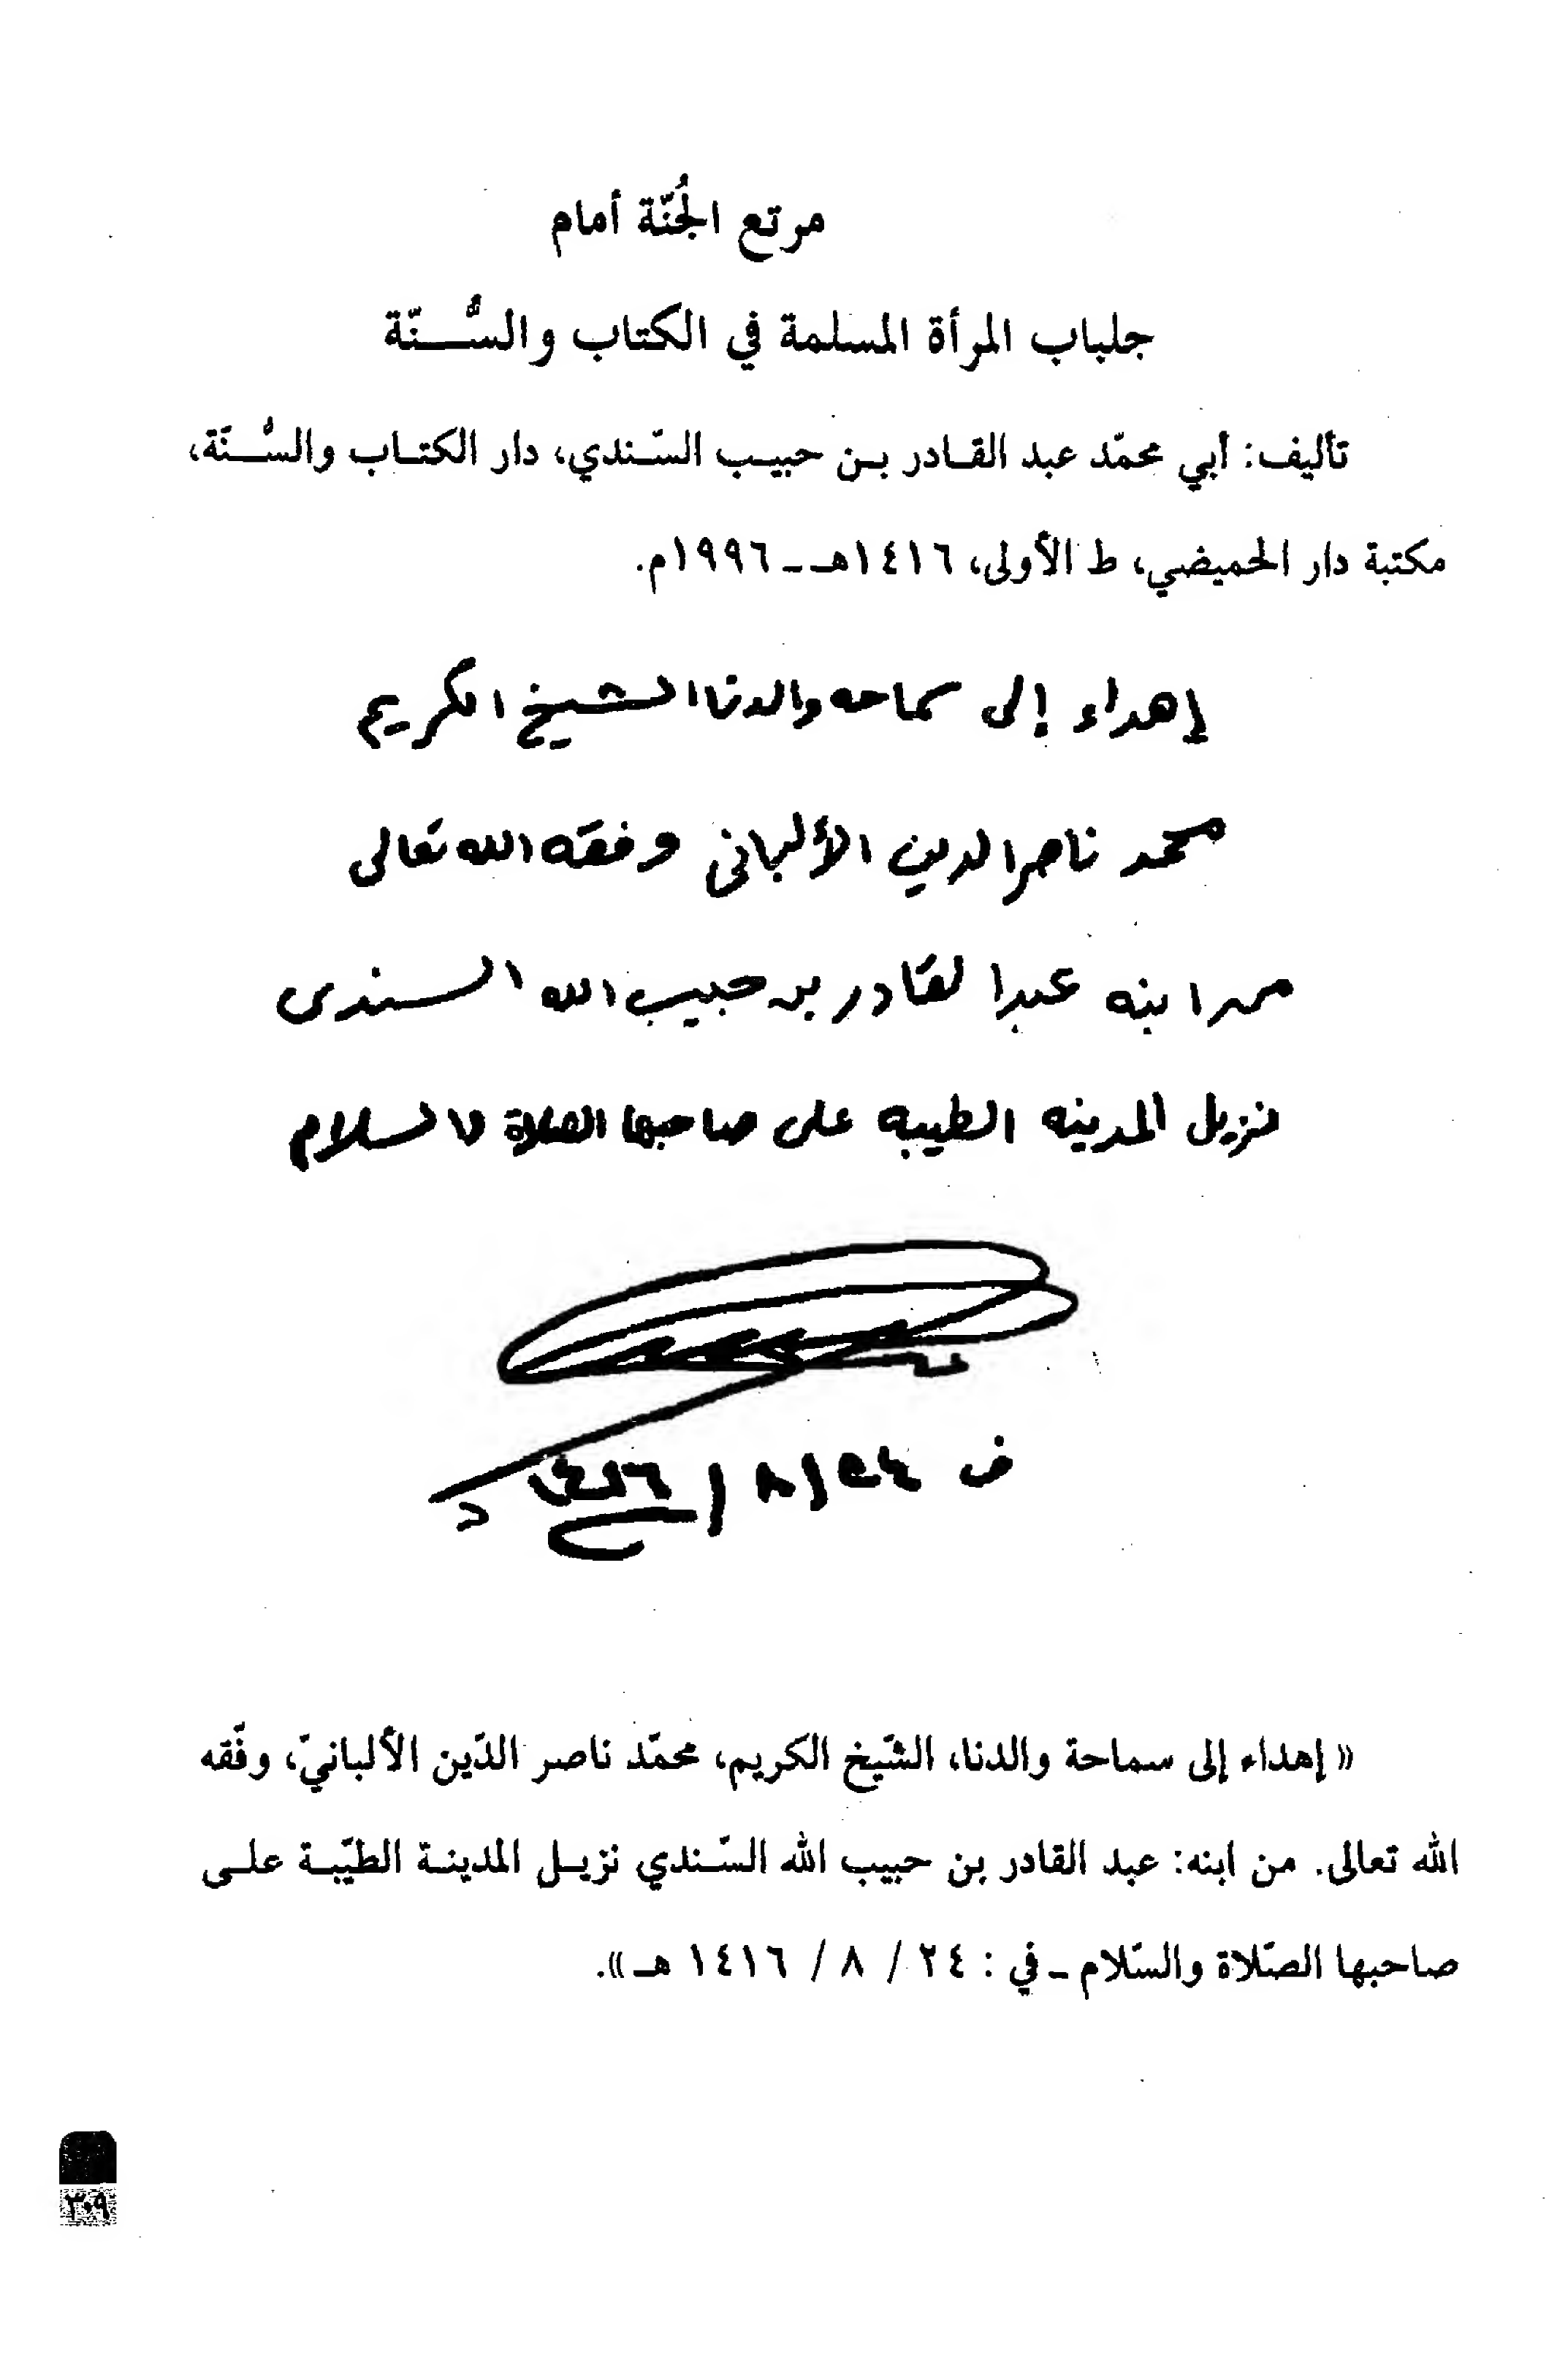 مرتع الجُنّة أمام
جلباب المرأة المسلمة في الكتاب والسُّـنّة
تأليف: أبي محمّد عبد القـادر بـن حبيـب السّـندي، دار الكتـاب والسُّـنّة،
مكتبة دار الحميضي، ط الأولى، ١٤١٦هـ - ١٩٩٦م.
إهداء إلى سماحه والدنا الشيخ الكريم
محمد ناصر الدين الألبانى وفقه الله تعالى
من ابنه عبد القادر بن حبيب الله السندى
نزيل المدينه الطيبه على صاحبها الصلاة والسلام
« إهداء إلى سماحة والدنا، الشّيخ الكريم، محمّد ناصر الدّين الألبانيّ، وفّقه
الله تعالى. من ابنه: عبد القادر بن حبيب الله السّندي نزيـل المدينـة الطيّبـة علـى
صاحبها الصّلاة والسّلام ـ في : ٢٤ / ٨ / ١٤١٦ هـ».
٣٠٩